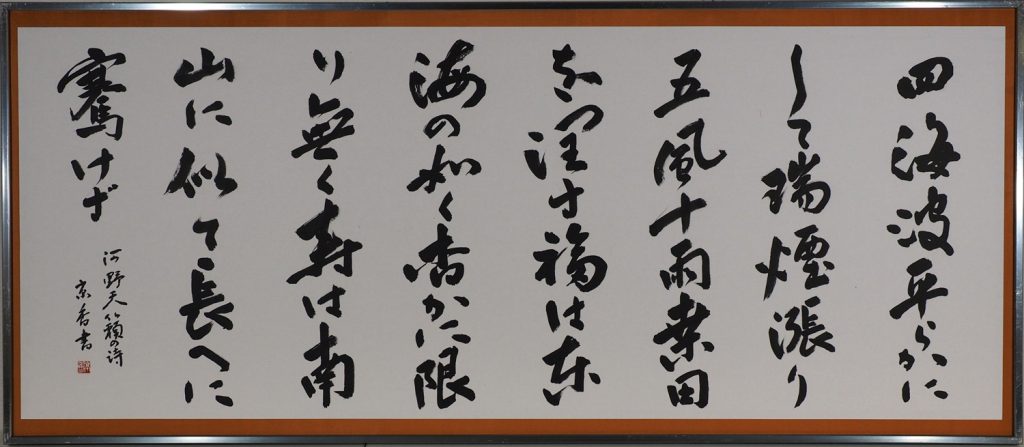 四海波平らかに
して瑞煙漲り
五風十雨桑田
を潤す福は東
海の如く杳かに限
り無く寿は南
山に似て長へに
騫けず
河野天籟の詩
京香書